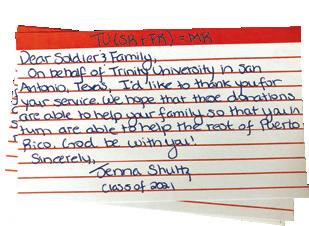 TU(SR + FR) = MR
Dear Soldier's Family,
On behalf of Trinity University in San
Antonio, Texas, I'd like to thank you for
your service. We hope that these donations
are able to help your family so that you in
turn are able to help the rest of Puerto
Rico. God be with you!
Sincerely,
Jenna Shultz
Class of 2021